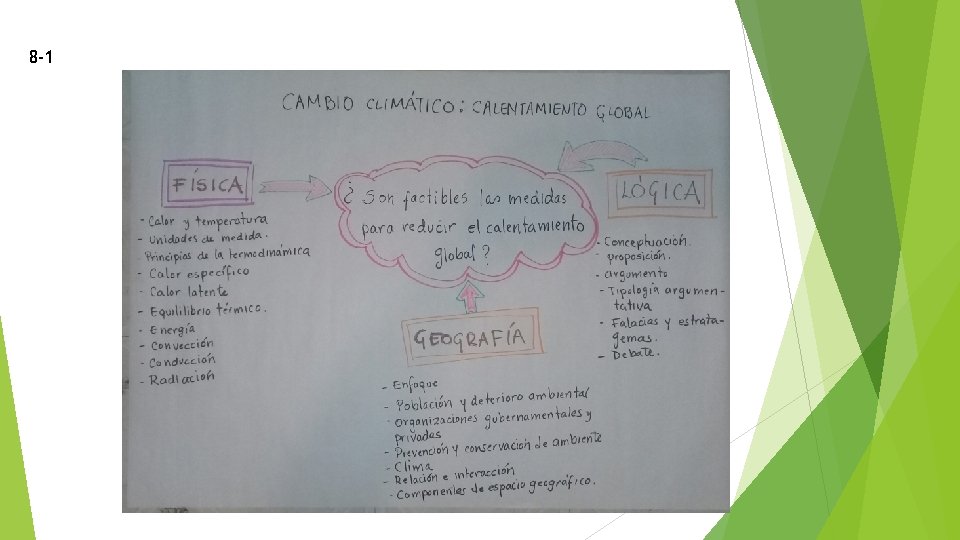 8-1
CAMBIO CLIMÁTICO: CALENTAMIENTO GLOBAL
FÍSICA
- Calor y temperatura
- Unidades de medida.
- Principios de la termodinámica
- Calor específico
- Calor latente
- Equililibrio térmico.
- Energía
- Convección
- Conducción
- Radiación
¿Son factibles las medidas
para reducir el calentamiento
global?
LÓGICA
- Conceptuación.
- proposición.
- argumento
- Tipología argumen-
tativa
- Falacias y estrata-
gemas.
- Debate.
GEOGRAFÍA
- Enfoque
- Población y deterioro ambiental
- organizaciones gubernamentales y
privadas
- Prevención y conservación de ambiente
- Clima
- Relación e interacción
- Componentes de espacio geográfico.